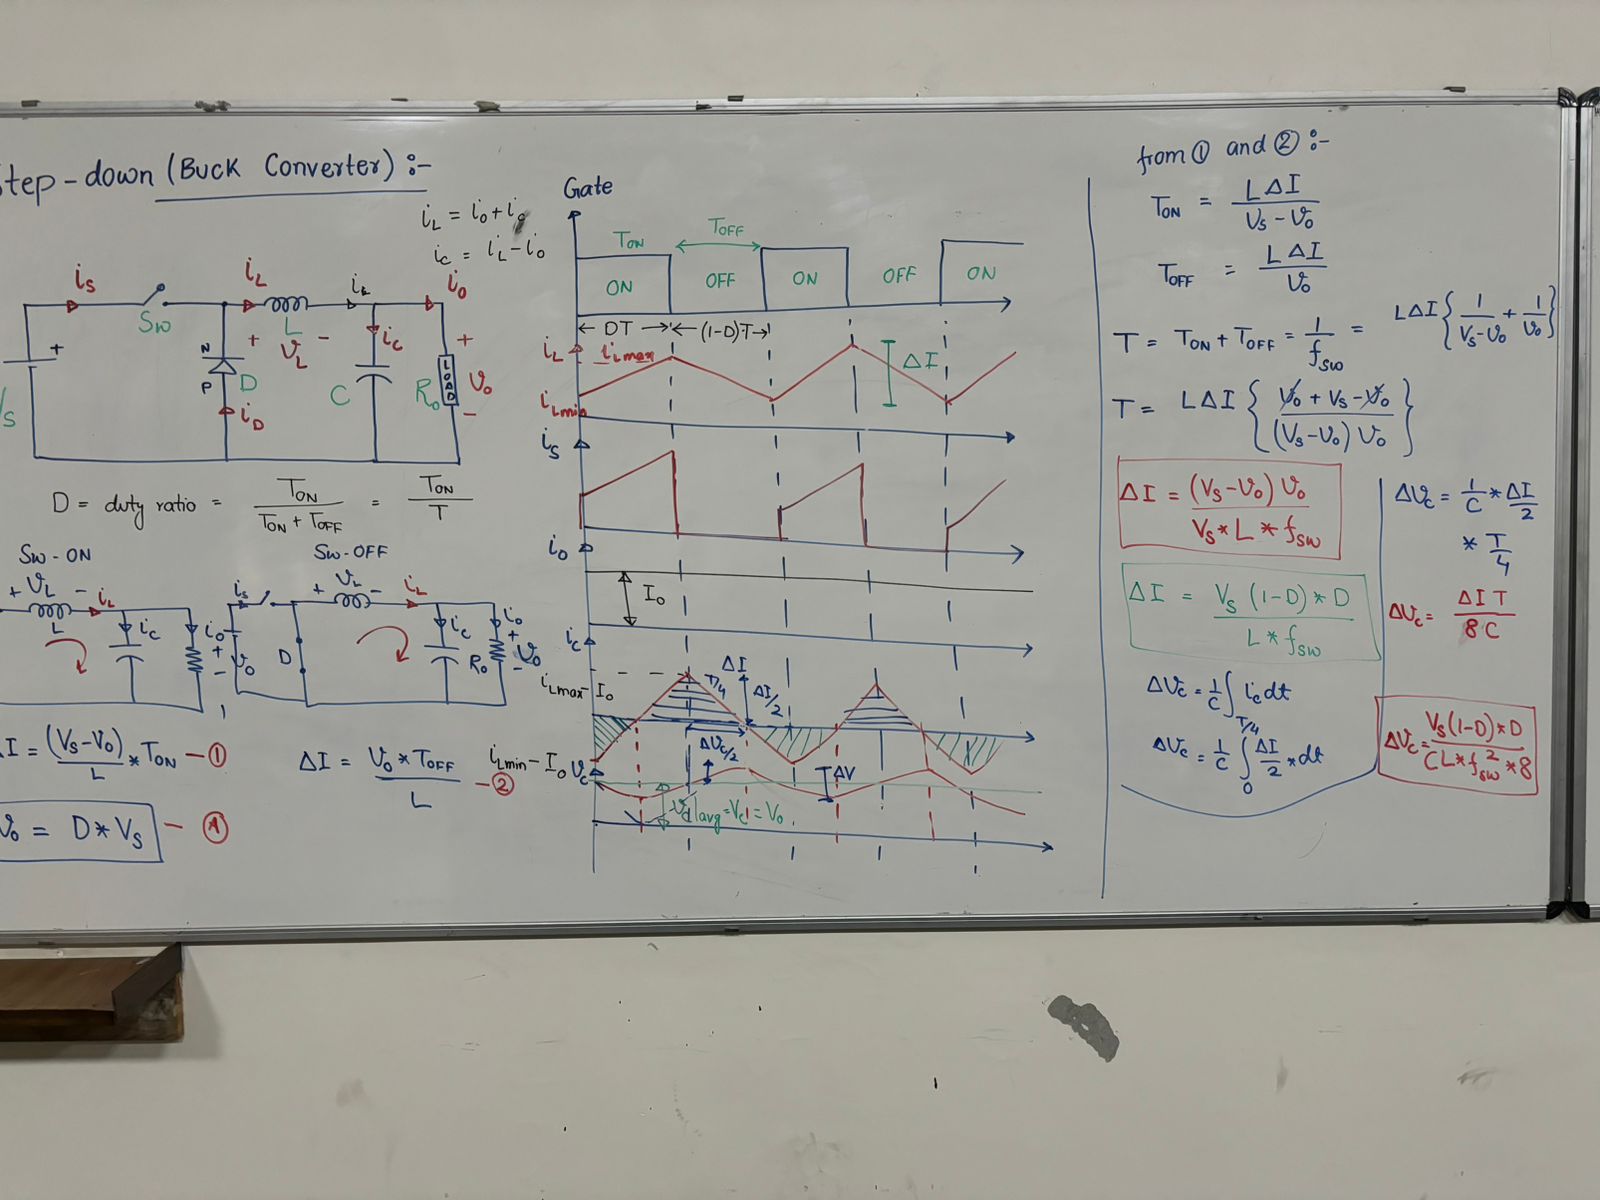 Step-down (Buck Converter) :-
iL = io + ic
ic = iL - io
is
Sw
iL
L
+ VL -
io
ic
C
N
P
D
iD
+
Vs
LOAD
Ro
+
Vo
-
D = duty ratio = TON / (TON + TOFF) = TON / T
Sw-ON
+ VL -
iL
L
ic
io
+
Vo
-
Sw-OFF
is
+ VL -
iL
D
ic
io
Ro
+
Vo
-
ΔI = (Vs-Vo)/L * TON - ①
ΔI = Vo * TOFF / L - ②
Vo = D * Vs - Ⓐ
Gate
TON
TOFF
ON
OFF
ON
OFF
ON
← DT → ← (1-D)T →
iL
iLmax
ΔI
iLmin
is
io
Io
ic
iLmax - Io
ΔI
T/4
ΔI/2
iLmin - Io
ΔVc/2
Vc
ΔV
|avg = Vc = Vo
from ① and ② :-
TON = LΔI / (Vs - Vo)
TOFF = LΔI / Vo
T = TON + TOFF = 1/fsw = LΔI { 1/(Vs-Vo) + 1/Vo }
T = LΔI { (Vo + Vs - Vo) / ((Vs-Vo) Vo) }
ΔI = (Vs-Vo) Vo / (Vs * L * fsw)
ΔI = Vs (1-D) * D / (L * fsw)
ΔVc = 1/C ∫ ic dt
ΔVc = 1/C ∫0^T/4 ΔI/2 * dt
ΔVc = 1/C * ΔI/2
* T/4
ΔVc = ΔI T / 8C
ΔVc = Vs(1-D) * D / (CL * fsw² * 8)